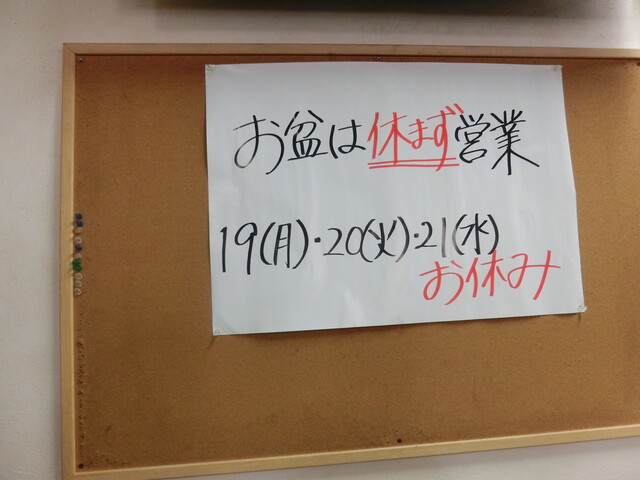 お盆は休まず営業
19(月)・20(火)・21(水)
お休み